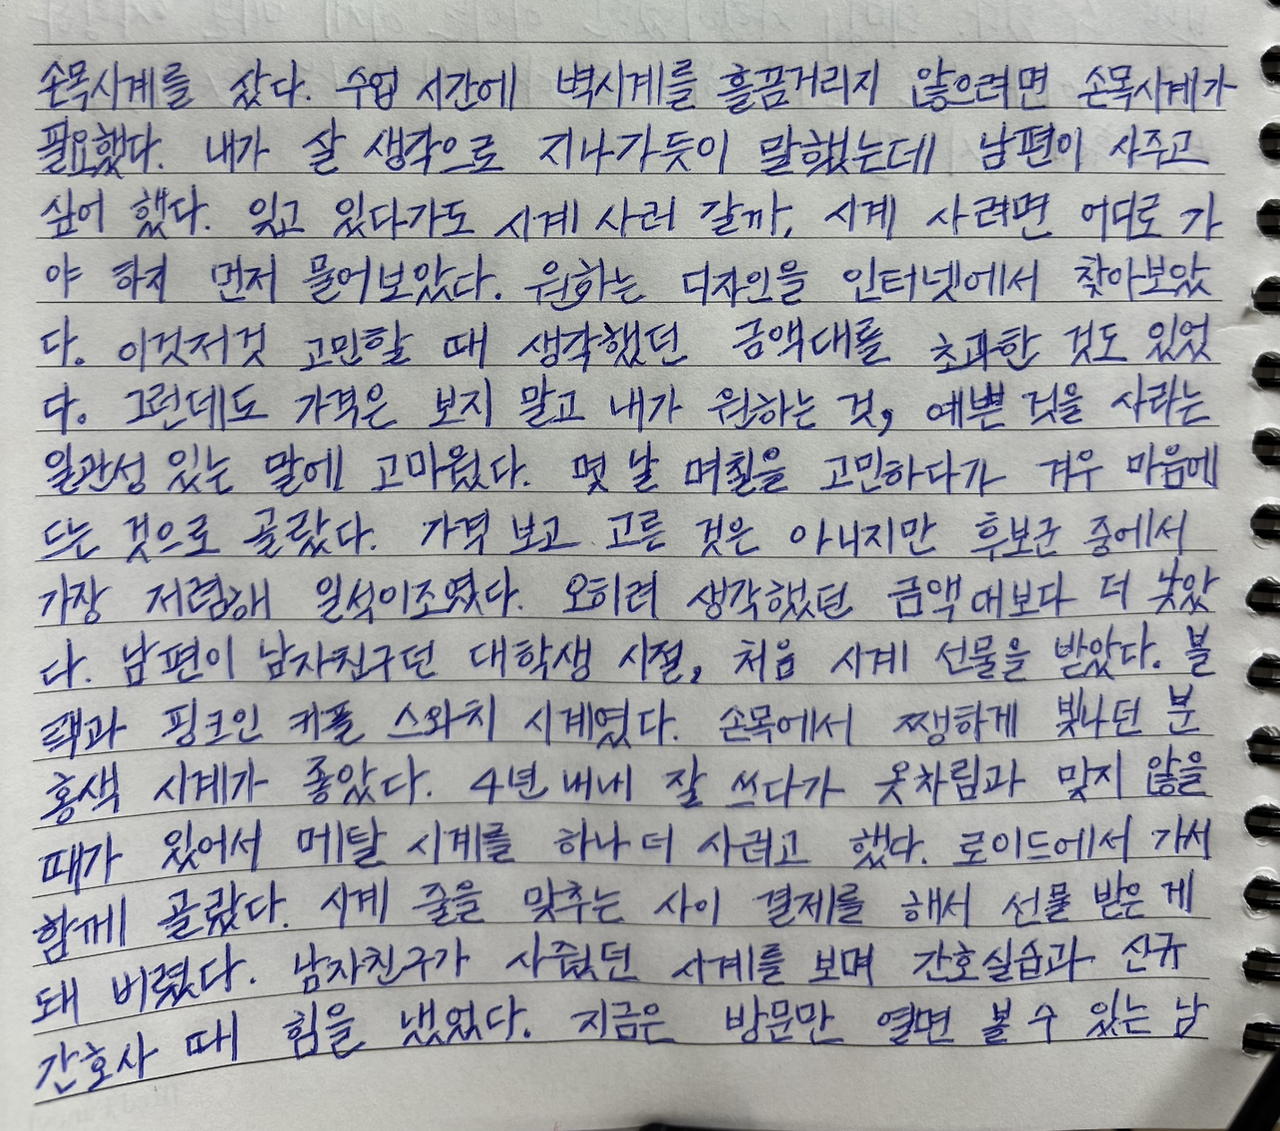 손목시계를 샀다. 수업 시간에 벽시계를 흘끔거리지 않으려면 손목시계가
필요했다. 내가 살 생각으로 지나가듯이 말했는데 남편이 사주고
싶어 했다. 잊고 있다가도 시계 사러 갈까, 시계 사려면 어디로 가
야 하지 먼저 물어보았다. 원하는 디자인을 인터넷에서 찾아보았
다. 이것저것 고민할 때 생각했던 금액대를 초과한 것도 있었
다. 그런데도 가격은 보지 말고 내가 원하는 것, 예쁜 것을 사라는
일관성 있는 말에 고마웠다. 몇 날 며칠을 고민하다가 겨우 마음에
드는 것으로 골랐다. 가격 보고 고른 것은 아니지만 후보군 중에서
가장 저렴해 일석이조였다. 오히려 생각했던 금액대보다 더 낮았
다. 남편이 남자친구던 대학생 시절, 처음 시계 선물을 받았다. 블
랙과 핑크인 커플 스와치 시계였다. 손목에서 쨍하게 빛나던 분
홍색 시계가 좋았다. 4년 내내 잘 쓰다가 옷차림과 맞지 않을
때가 있어서 메탈 시계를 하나 더 사려고 했다. 로이드에서 가서
함께 골랐다. 시계 줄을 맞추는 사이 결제를 해서 선물 받은 게
돼 버렸다. 남자친구가 사줬던 시계를 보며 간호실습과 신규
간호사 때 힘을 냈었다. 지금은 방문만 열면 볼 수 있는 남